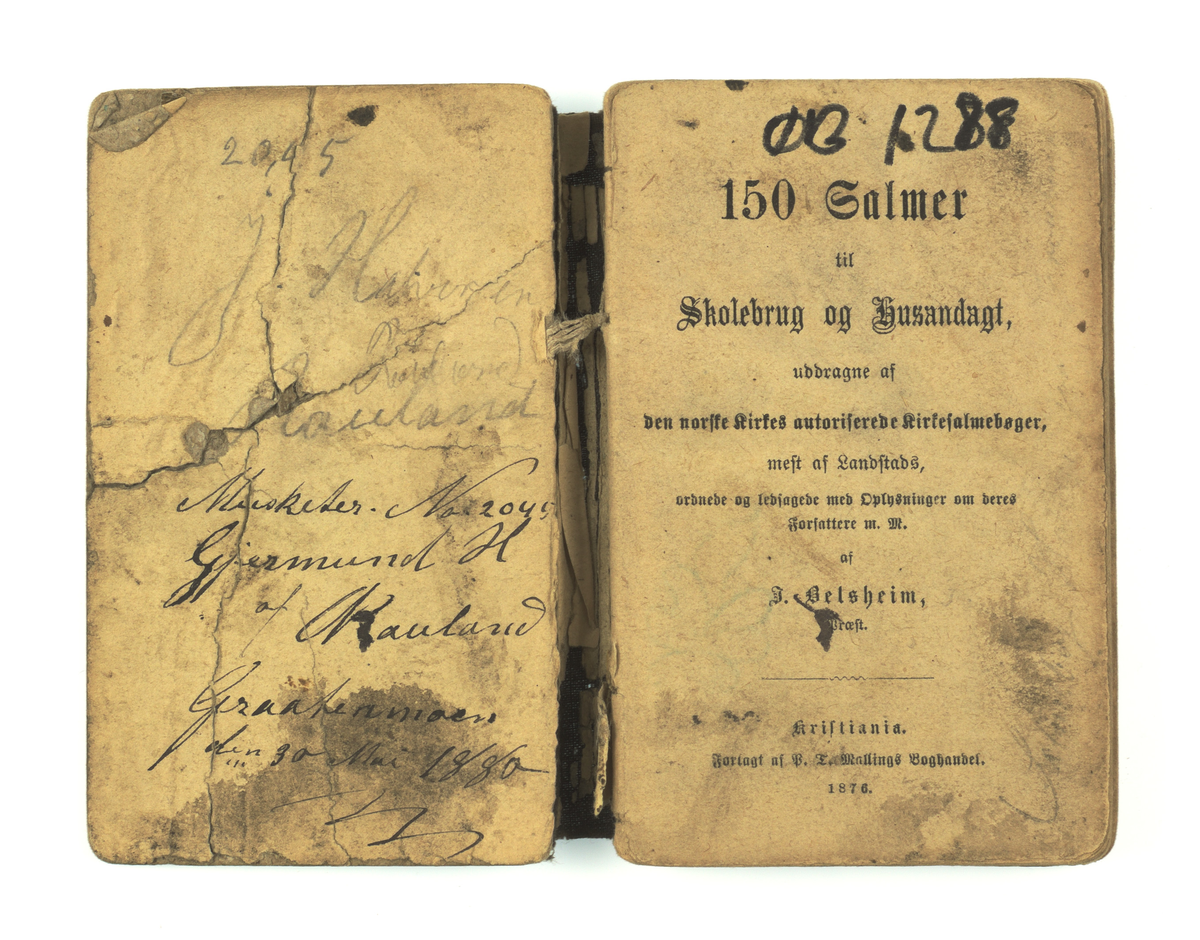 2045
J. Halvorsen
Rauland
Musketer. No 2045
Gjermund H
af Rauland
Graatenmoen
den 30 Mai 1880
ØB 1288
150 Salmer
til
Skolebrug og Husandagt,
uddragne af
den norske Kirkes autoriserede Kirkesalmebøger,
mest af Landstads,
ordnede og ledsagede med Oplysninger om deres
Forfattere m. M.
af
J. Belsheim,
Præst.
Kristiania.
Forlagt af P. T. Mallings Boghandel.
1876.